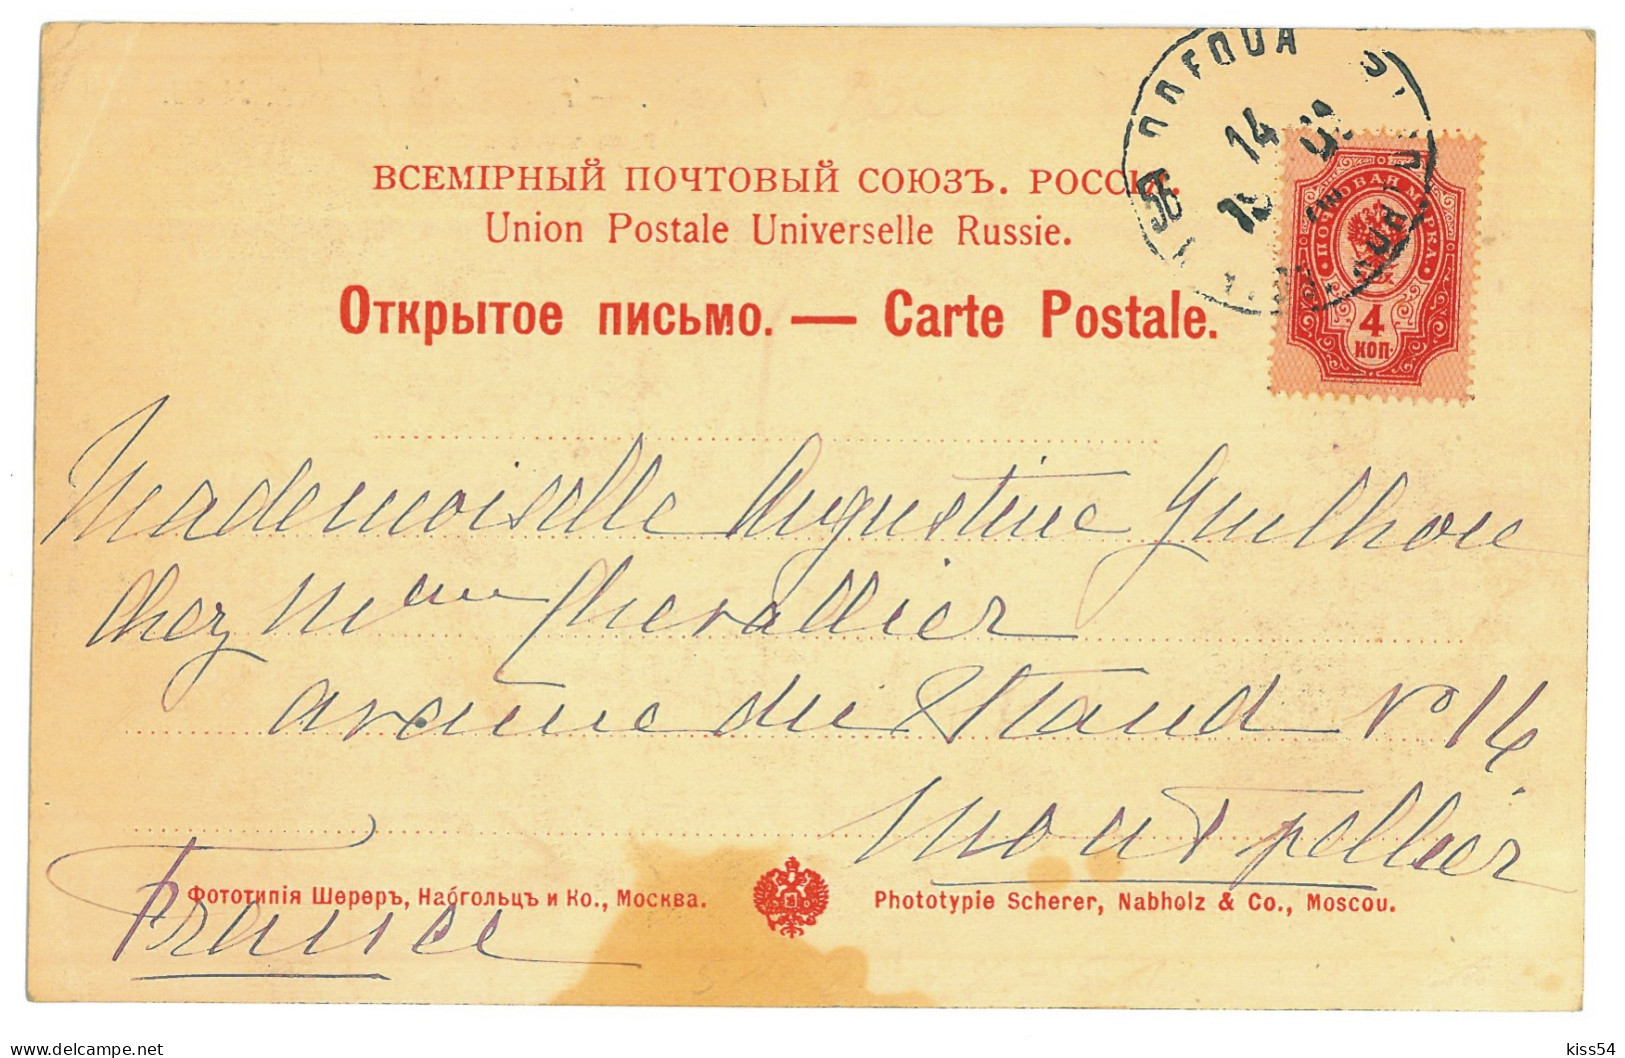 ВСЕМІРНЫЙ ПОЧТОВЫЙ СОЮЗЪ. РОССІЯ.
Union Postale Universelle Russie.
Открытое письмо. — Carte Postale.
56
14
ПОЧТОВАЯ МАРКА
4
КОП
Mademoiselle Augustine Guilhou
Chez Mme Chevallier
avenue du Stand No 14
Montpellier
France
Фототипія Шереръ, Набгольцъ и Ко., Москва.
Phototypie Scherer, Nabholz & Co., Moscou.
kiss54